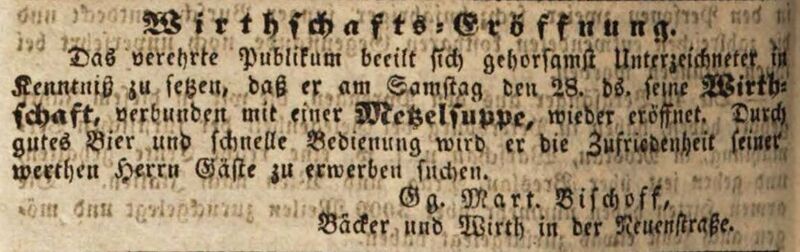 Wirthschafts-Eröffnung.
Das verehrte Publikum beeilt sich gehorsamst Unterzeichneter in
Kenntniß zu setzen, daß er am Samstag den 28. ds. seine Wirth-
schaft, verbunden mit einer Metzelsuppe, wieder eröffnet. Durch
gutes Bier und schnelle Bedienung wird er die Zufriedenheit seiner
werthen Herrn Gäste zu erwerben suchen.
Gg. Mart. Bischoff,
Bäcker und Wirth in der Neuenstraße.